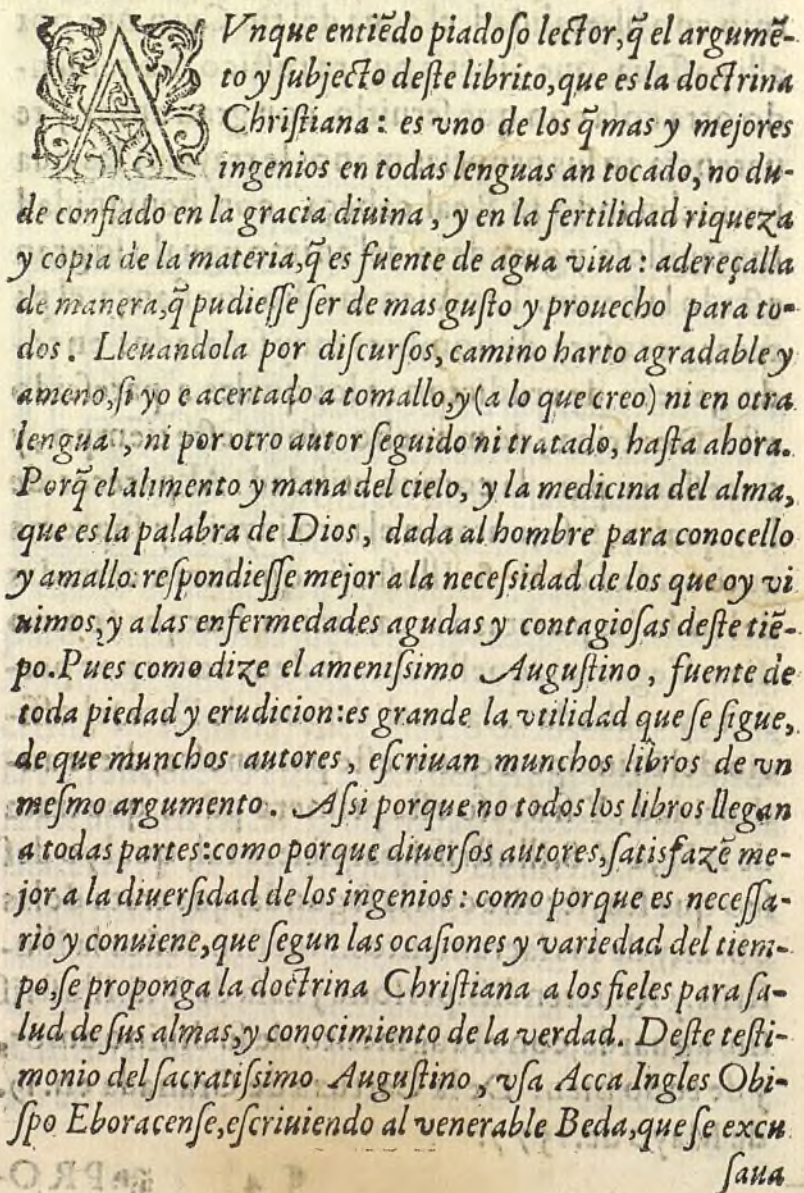 AVnque entiẽdo piadoſo lector, q̃ el argumẽ-
to y ſubjecto deſte librito, que es la doctrina
Chriſtiana: es vno de los q̃ mas y mejores
ingenios en todas lenguas an tocado, no du-
de confiado en la gracia diuina, y en la fertilidad riqueza
y copia de la materia, q̃ es fuente de agua viua: adereçalla
de manera, q̃ pudieſſe ſer de mas guſto y prouecho para to-
dos. Lleuandola por diſcurſos, camino harto agradable y
ameno, ſi yo e acertado a tomallo, y (a lo que creo) ni en otra
lengua, ni por otro autor ſeguido ni tratado, haſta ahora.
Porq̃ el alimento y mana del cielo, y la medicina del alma,
que es la palabra de Dios, dada al hombre para conocello
y amallo: reſpondieſſe mejor a la neceſsidad de los que oy vi
uimos, y a las enfermedades agudas y contagioſas deſte tiẽ-
po. Pues como dize el ameniſsimo Auguſtino, fuente de
toda piedad y erudicion: es grande la vtilidad que ſe ſigue,
de que munchos autores, eſcriuan munchos libros de vn
meſmo argumento. Aſsi porque no todos los libros llegan
a todas partes: como porque diuerſos autores, ſatisfazẽ me-
jor a la diuerſidad de los ingenios: como porque es neceſſa-
rio y conuiene, que ſegun las ocaſiones y variedad del tiem-
po, ſe proponga la doctrina Chriſtiana a los fieles para ſa-
lud de ſus almas, y conocimiento de la verdad. Deſte teſti-
monio del ſacratiſsimo Auguſtino, vſa Acca Ingles Obi-
ſpo Eboracenſe, eſcriuiendo al venerable Beda, que ſe excu
ſaua